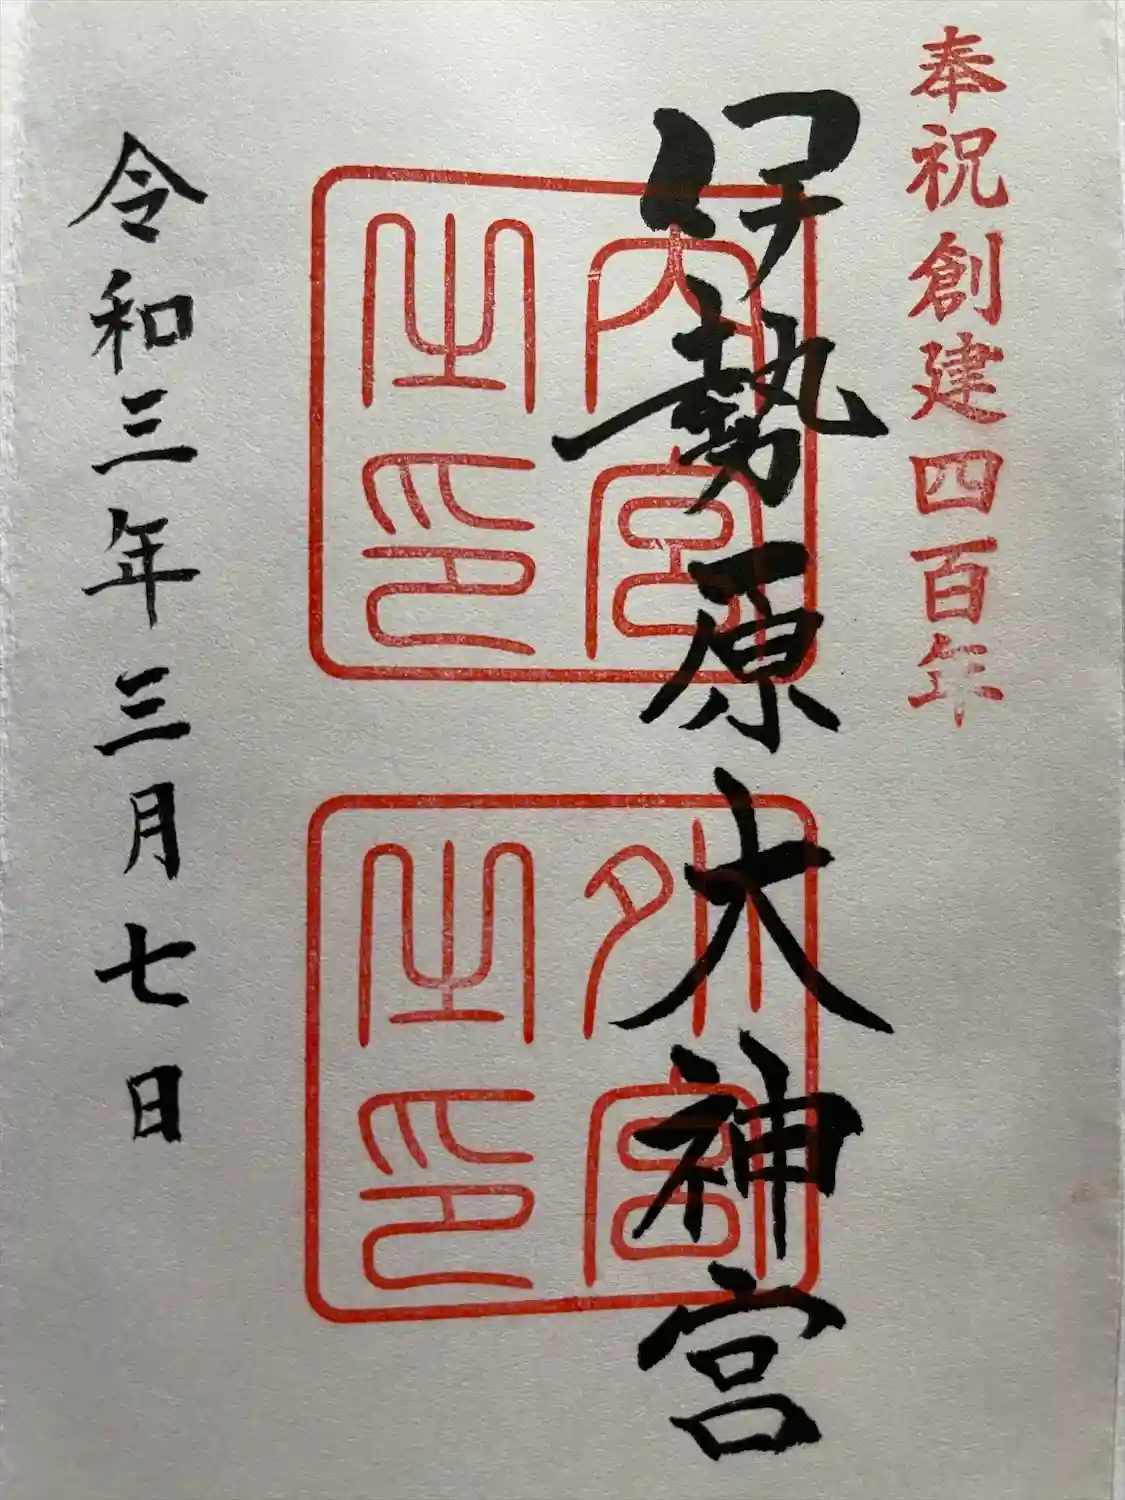 奉祝創建四百年
伊勢原大神宮
内宮之印
外宮之印
令和三年三月七日